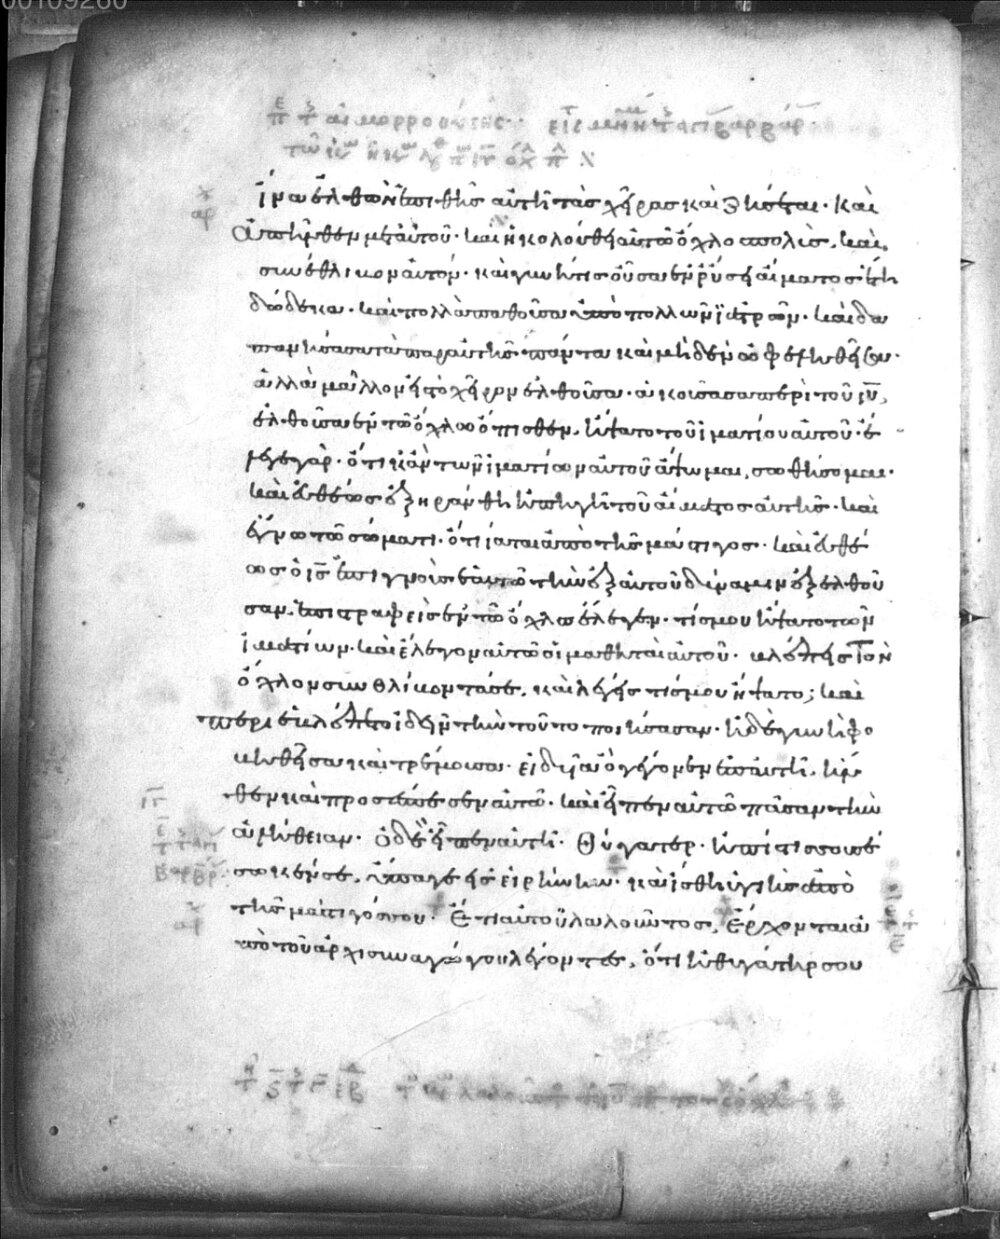 ἵνα ἐλθὼν ἐπιθῆς αὐτῆ τὰς χεῖρας καὶ ζήσεται· καὶ
ἀπῆλθεν μετ αὐτοῦ· καὶ ἠκολούθει αὐτῶ ὄχλος πολὺς, καὶ
συνέθλιβον αὐτόν· καὶ γυνή τις οὖσα ἐν ῥύσει αἵματος ἔτη
δώδεκα· καὶ πολλὰ παθοῦσα ὑπὸ πολλῶν ἰατρῶν· καὶ δα
πανήσασα τὰ παρ αὐτῆς πάντα καὶ μηδὲν ὠφεληθεῖσα·
ἀλλὰ μᾶλλον εἰς τὸ χεῖρον ἐλθοῦσα· ἀκούσασα περὶ τοῦ ιυ,
ἐλθοῦσα ἐν τῶ ὄχλω ὄπισθεν, ἥψατο τοῦ ἱματίου αὐτοῦ· ἔ
λεγε γὰρ· ὅτι κἂν τῶν ἱματίων αὐτοῦ ἅψωμαι, σωθήσομαι·
καὶ εὐθέως ἐξηράνθη ἡ πηγὴ τοῦ αἵματος αὐτῆς· καὶ
ἔγνω τῶ σώματι· ὅτι ἴαται ἀπὸ τῆς μάστιγος· καὶ εὐθέ
ως ὁ ις ἐπιγνοὺς ἐν αὐτῶ τὴν ἐξ αὐτοῦ δύναμιν ἐξελθοῦ
σαν, ἐπιστραφεὶς ἐν τῶ ὄχλω ἔλεγεν· τίς μου ἥψατο τῶν
ἱματίων· καὶ ἔλεγον αὐτῶ οἱ μαθηταὶ αὐτοῦ· βλέπεις τὸν
ὄχλον συνθλίβοντά σε, καὶ λέγεις τίς μου ἥψατο; καὶ
περιεβλέπετο ἰδεῖν τὴν τοῦτο ποιήσασαν· ἡ δὲ γυνὴ φο
βηθεῖσα καὶ τρέμουσα· εἰδυῖα ὃ γέγονεν ἐπ αὐτῆ, ἦλ
θεν καὶ προσέπεσεν αὐτῶ· καὶ εἶπεν αὐτῶ πᾶσαν τὴν
ἀλήθειαν· ὁ δὲ εἶπεν αὐτῆ· Θύγατερ· ἡ πίστις σου σέ
σωκέν σε, ὕπαγε εἰς εἰρήνην· καὶ ἴσθι ὑγιὴς ἀπὸ
τῆς μάστιγός σου· Ἔτι αὐτοῦ λαλοῦντος, ἔρχονται ἀ
πὸ τοῦ ἀρχισυναγώγου λέγοντες, ὅτι ἡ θυγάτηρ σου